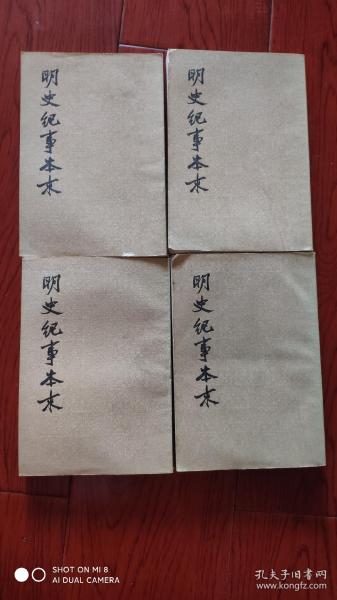 明史纪事本末
明史纪事本末
明史纪事本末
明史纪事本末
SHOT ON MI 8
AI DUAL CAMERA
孔夫子旧书网
www.kongfz.com